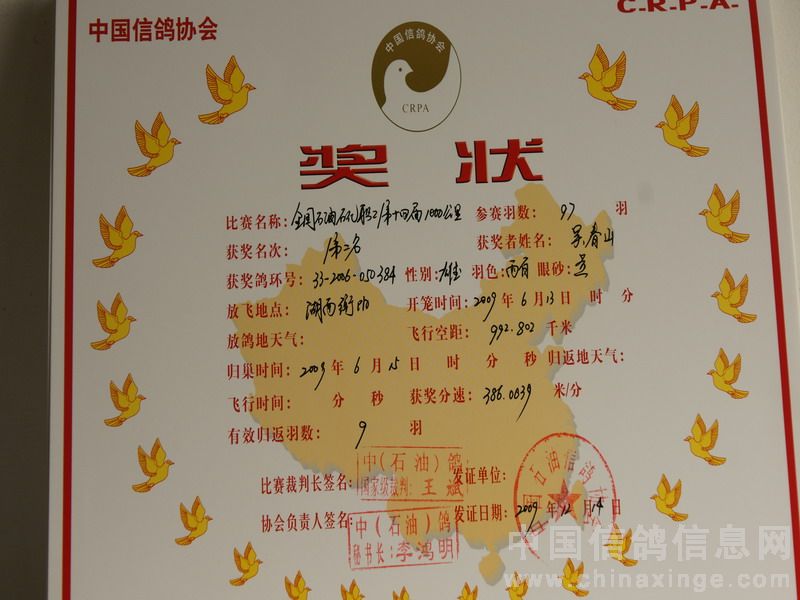 C-R-P-A-
中国信鸽协会
中国信鸽协会
CRPA
奖状
比赛名称：全国石油石化职工第十四届1000公里 参赛羽数：97 羽
获奖名次：第二名 获奖者姓名：吴春山
获奖鸽环号：33-2006-050384 性别：雄 羽色：雨 眼砂：
放飞地点：湖南衡阳 开笼时间：2009年6月13日 时 分
放鸽地天气： 飞行空距：992.802 千米
归巢时间：2009年6月15日 时 分 秒 归返地天气：
飞行时间： 分 秒 获奖分速：386.0039 米/分
有效归返羽数：9 羽
比赛裁判长签名： 中（石油）鸽 发证单位：
国家级裁判：王斌
协会负责人签名： 中（石油）鸽 发证日期：2009年12月14日
秘书长：李鸿明
中国信鸽信息网
www.chinaxinge.com